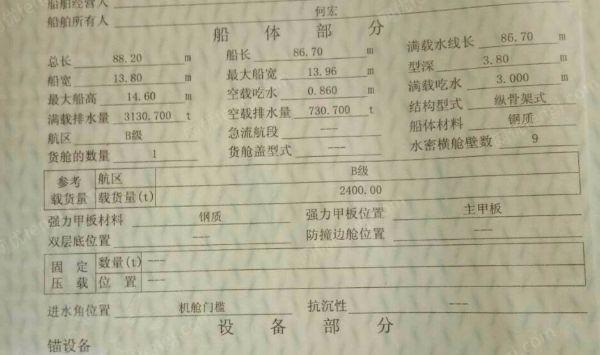 船舶经营人
船舶所有人 何宏
船 体 部 分
总长 88.20 m 船长 86.70 m 满载水线长 86.70 m
船宽 13.80 m 最大船宽 13.96 m 型深 3.80 m
最大船高 14.60 m 空载吃水 0.860 m 满载吃水 3.000 m
满载排水量 3130.700 t 空载排水量 730.700 t 结构型式 纵骨架式
航区 B级 急流航段 --- 船体材料 钢质
货舱的数量 1 货舱盖型式 --- 水密横舱壁数 9
参考载货量 航区 B级
载货量(t) 2400.00
强力甲板材料 钢质 强力甲板位置 主甲板
双层底位置 --- 防撞边舱位置 ---
固定压载 数量(t) ---
位置 ---
进水角位置 机舱门槛 抗沉性 ---
设 备 部 分
锚设备